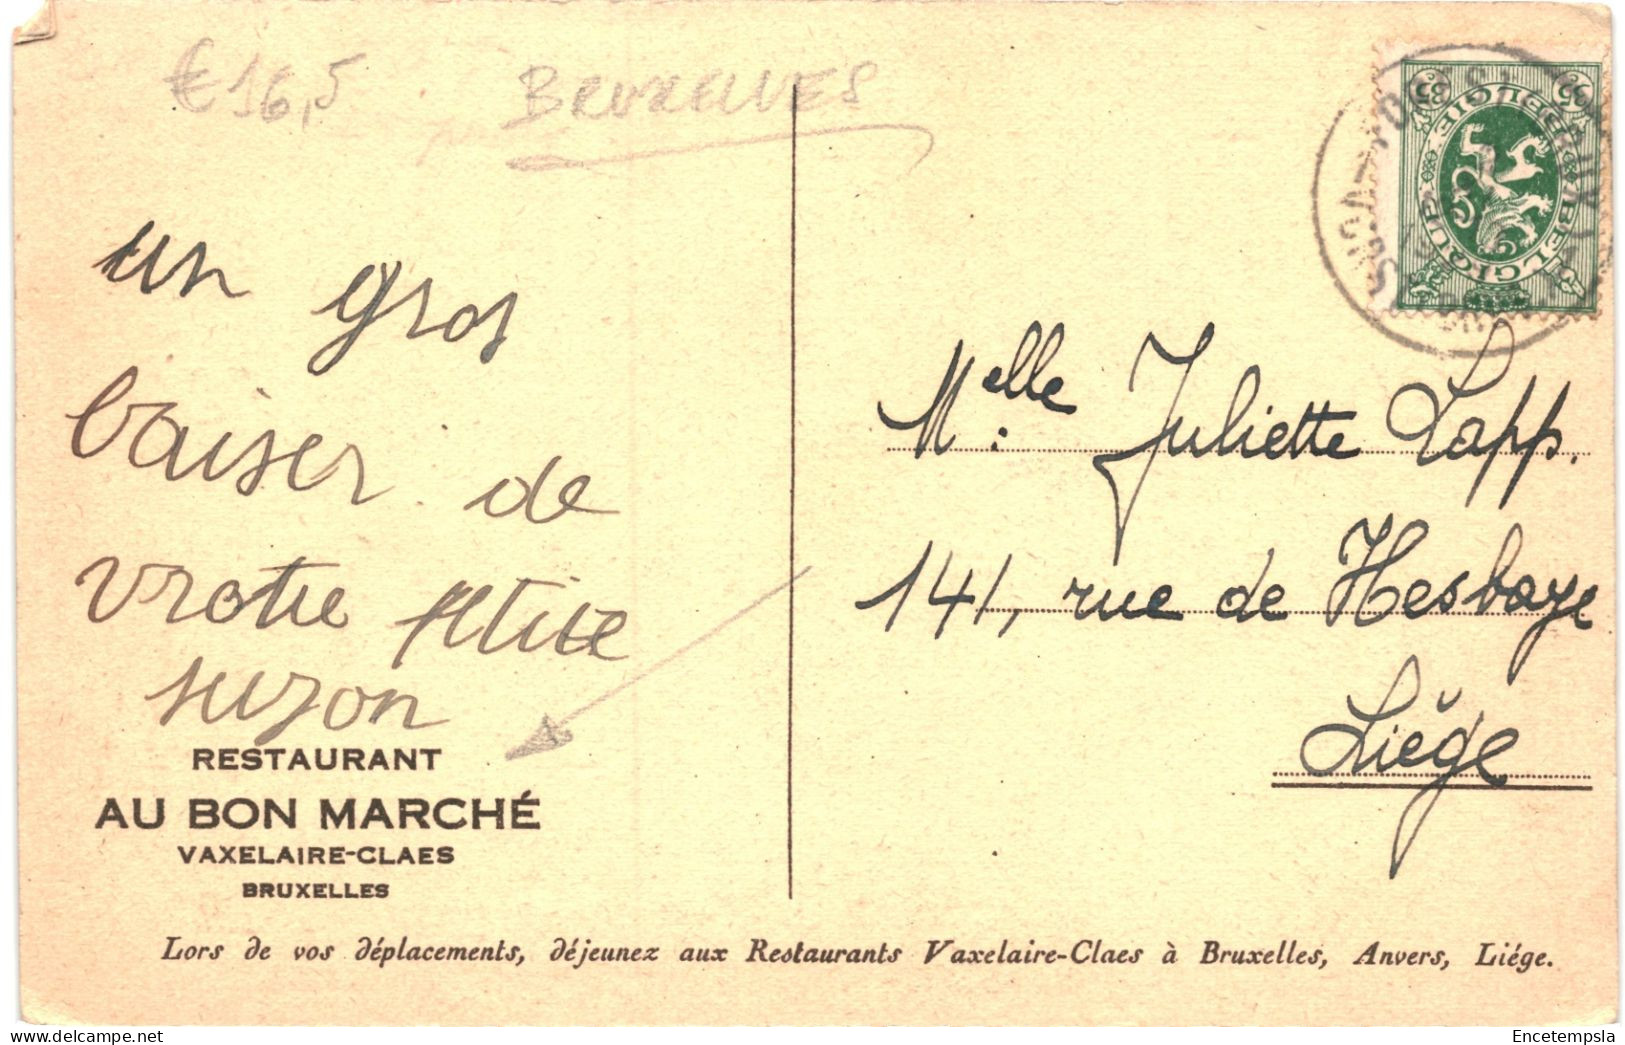 €16,5 BRUXELLES
un gros
baiser de
vrotre petite
suzon
RESTAURANT
AU BON MARCHÉ
VAXELAIRE-CLAES
BRUXELLES
35 BELGIQUE BELGIË 35
Melle Juliette Lapp.
141, rue de Hesbaye
Liège
Lors de vos déplacements, déjeunez aux Restaurants Vaxelaire-Claes à Bruxelles, Anvers, Liége.
Encetempsla